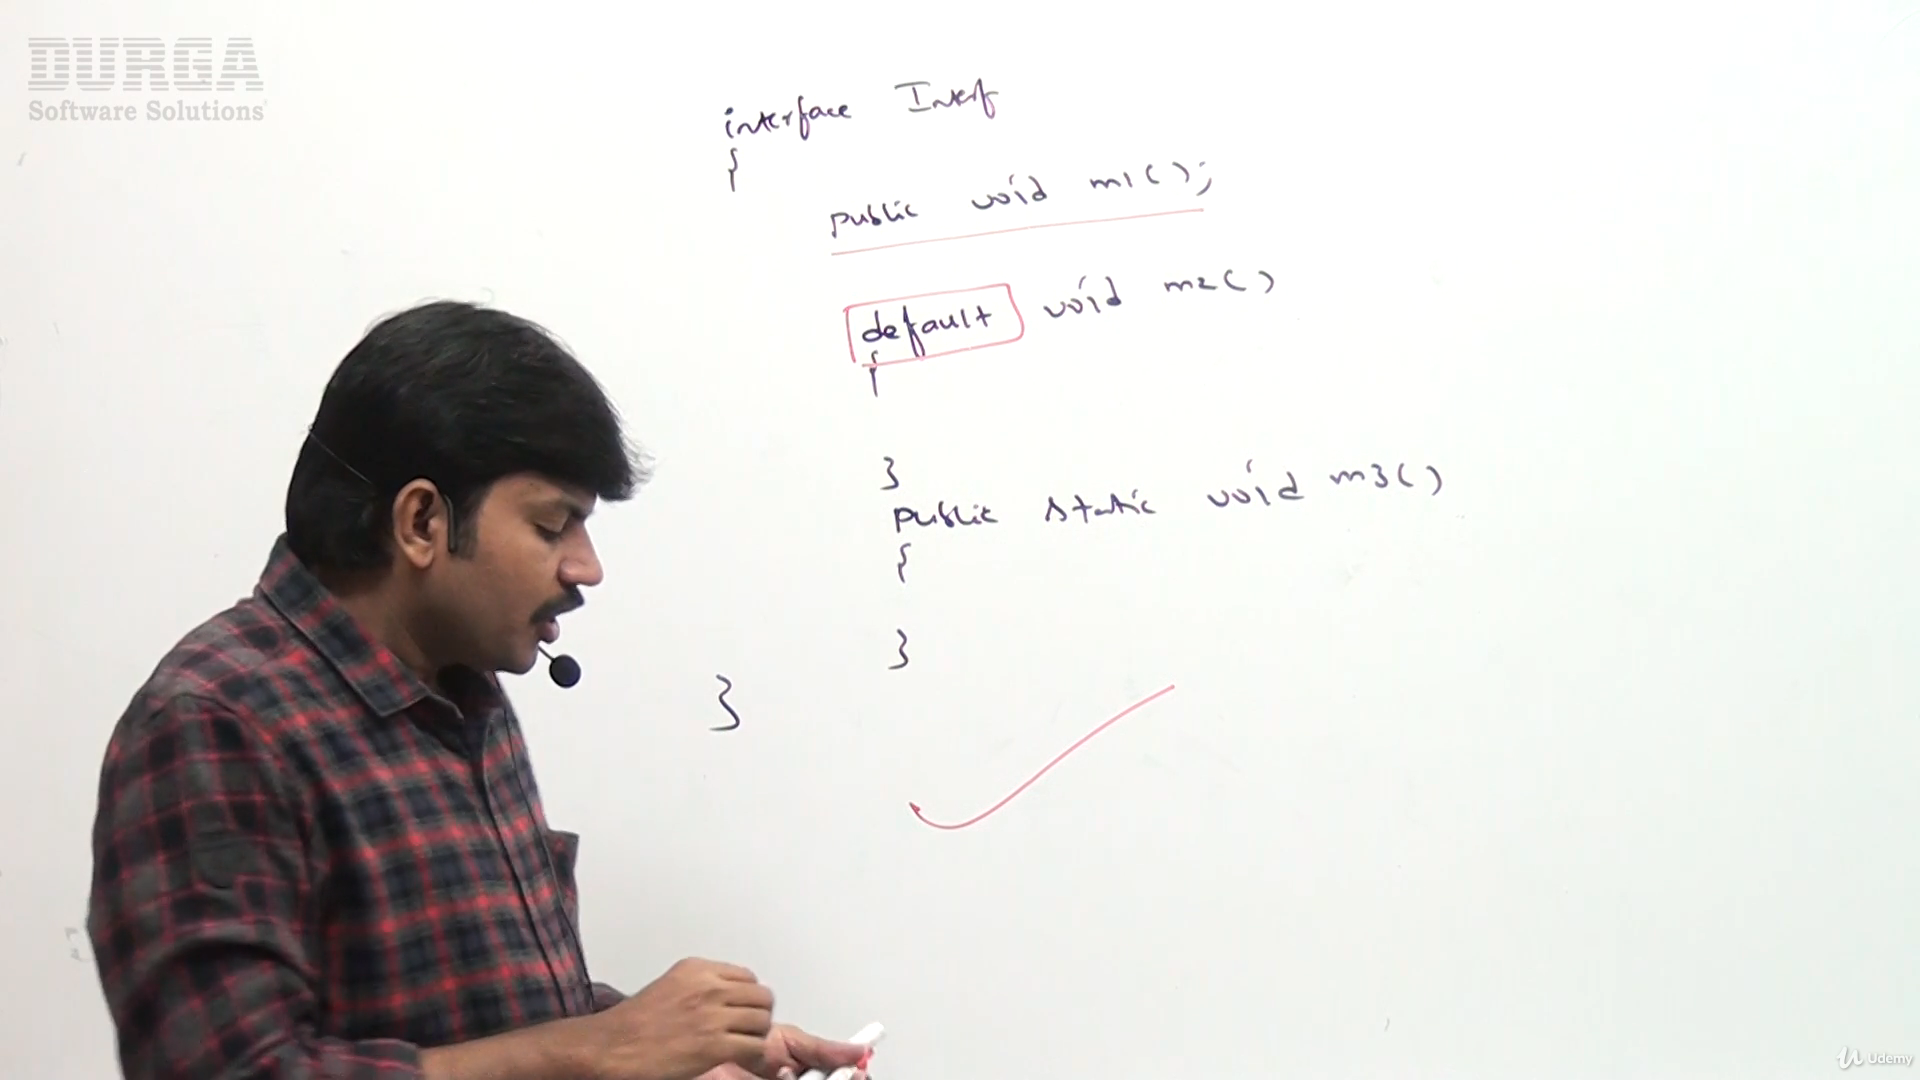 DURGA
Software Solutions
interface Interf
{
public void m1();
default void m2()
{
}
public static void m3()
{
}
}
Udemy